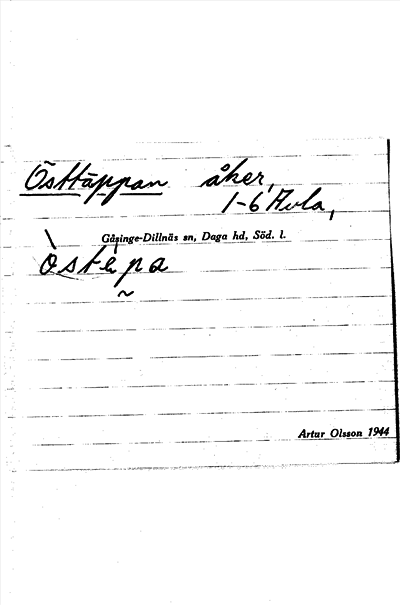 Östtäppan åker,
1-6 Avla,
Gåsinge-Dillnäs sn, Daga hd, Söd. l.
òstè̀pa
~
Artur Olsson 1944